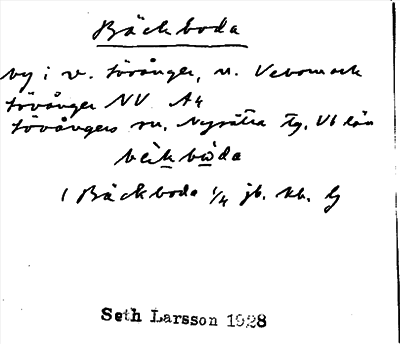 Bäckboda
by i v. Lövånger, n. Vebomark
Lövånger NV A4
Lövångers sn. Nysätra tg. Vb län
bèik bωda
1 Bäckboda 1/4 jb. kb. G
Seth Larsson 1928